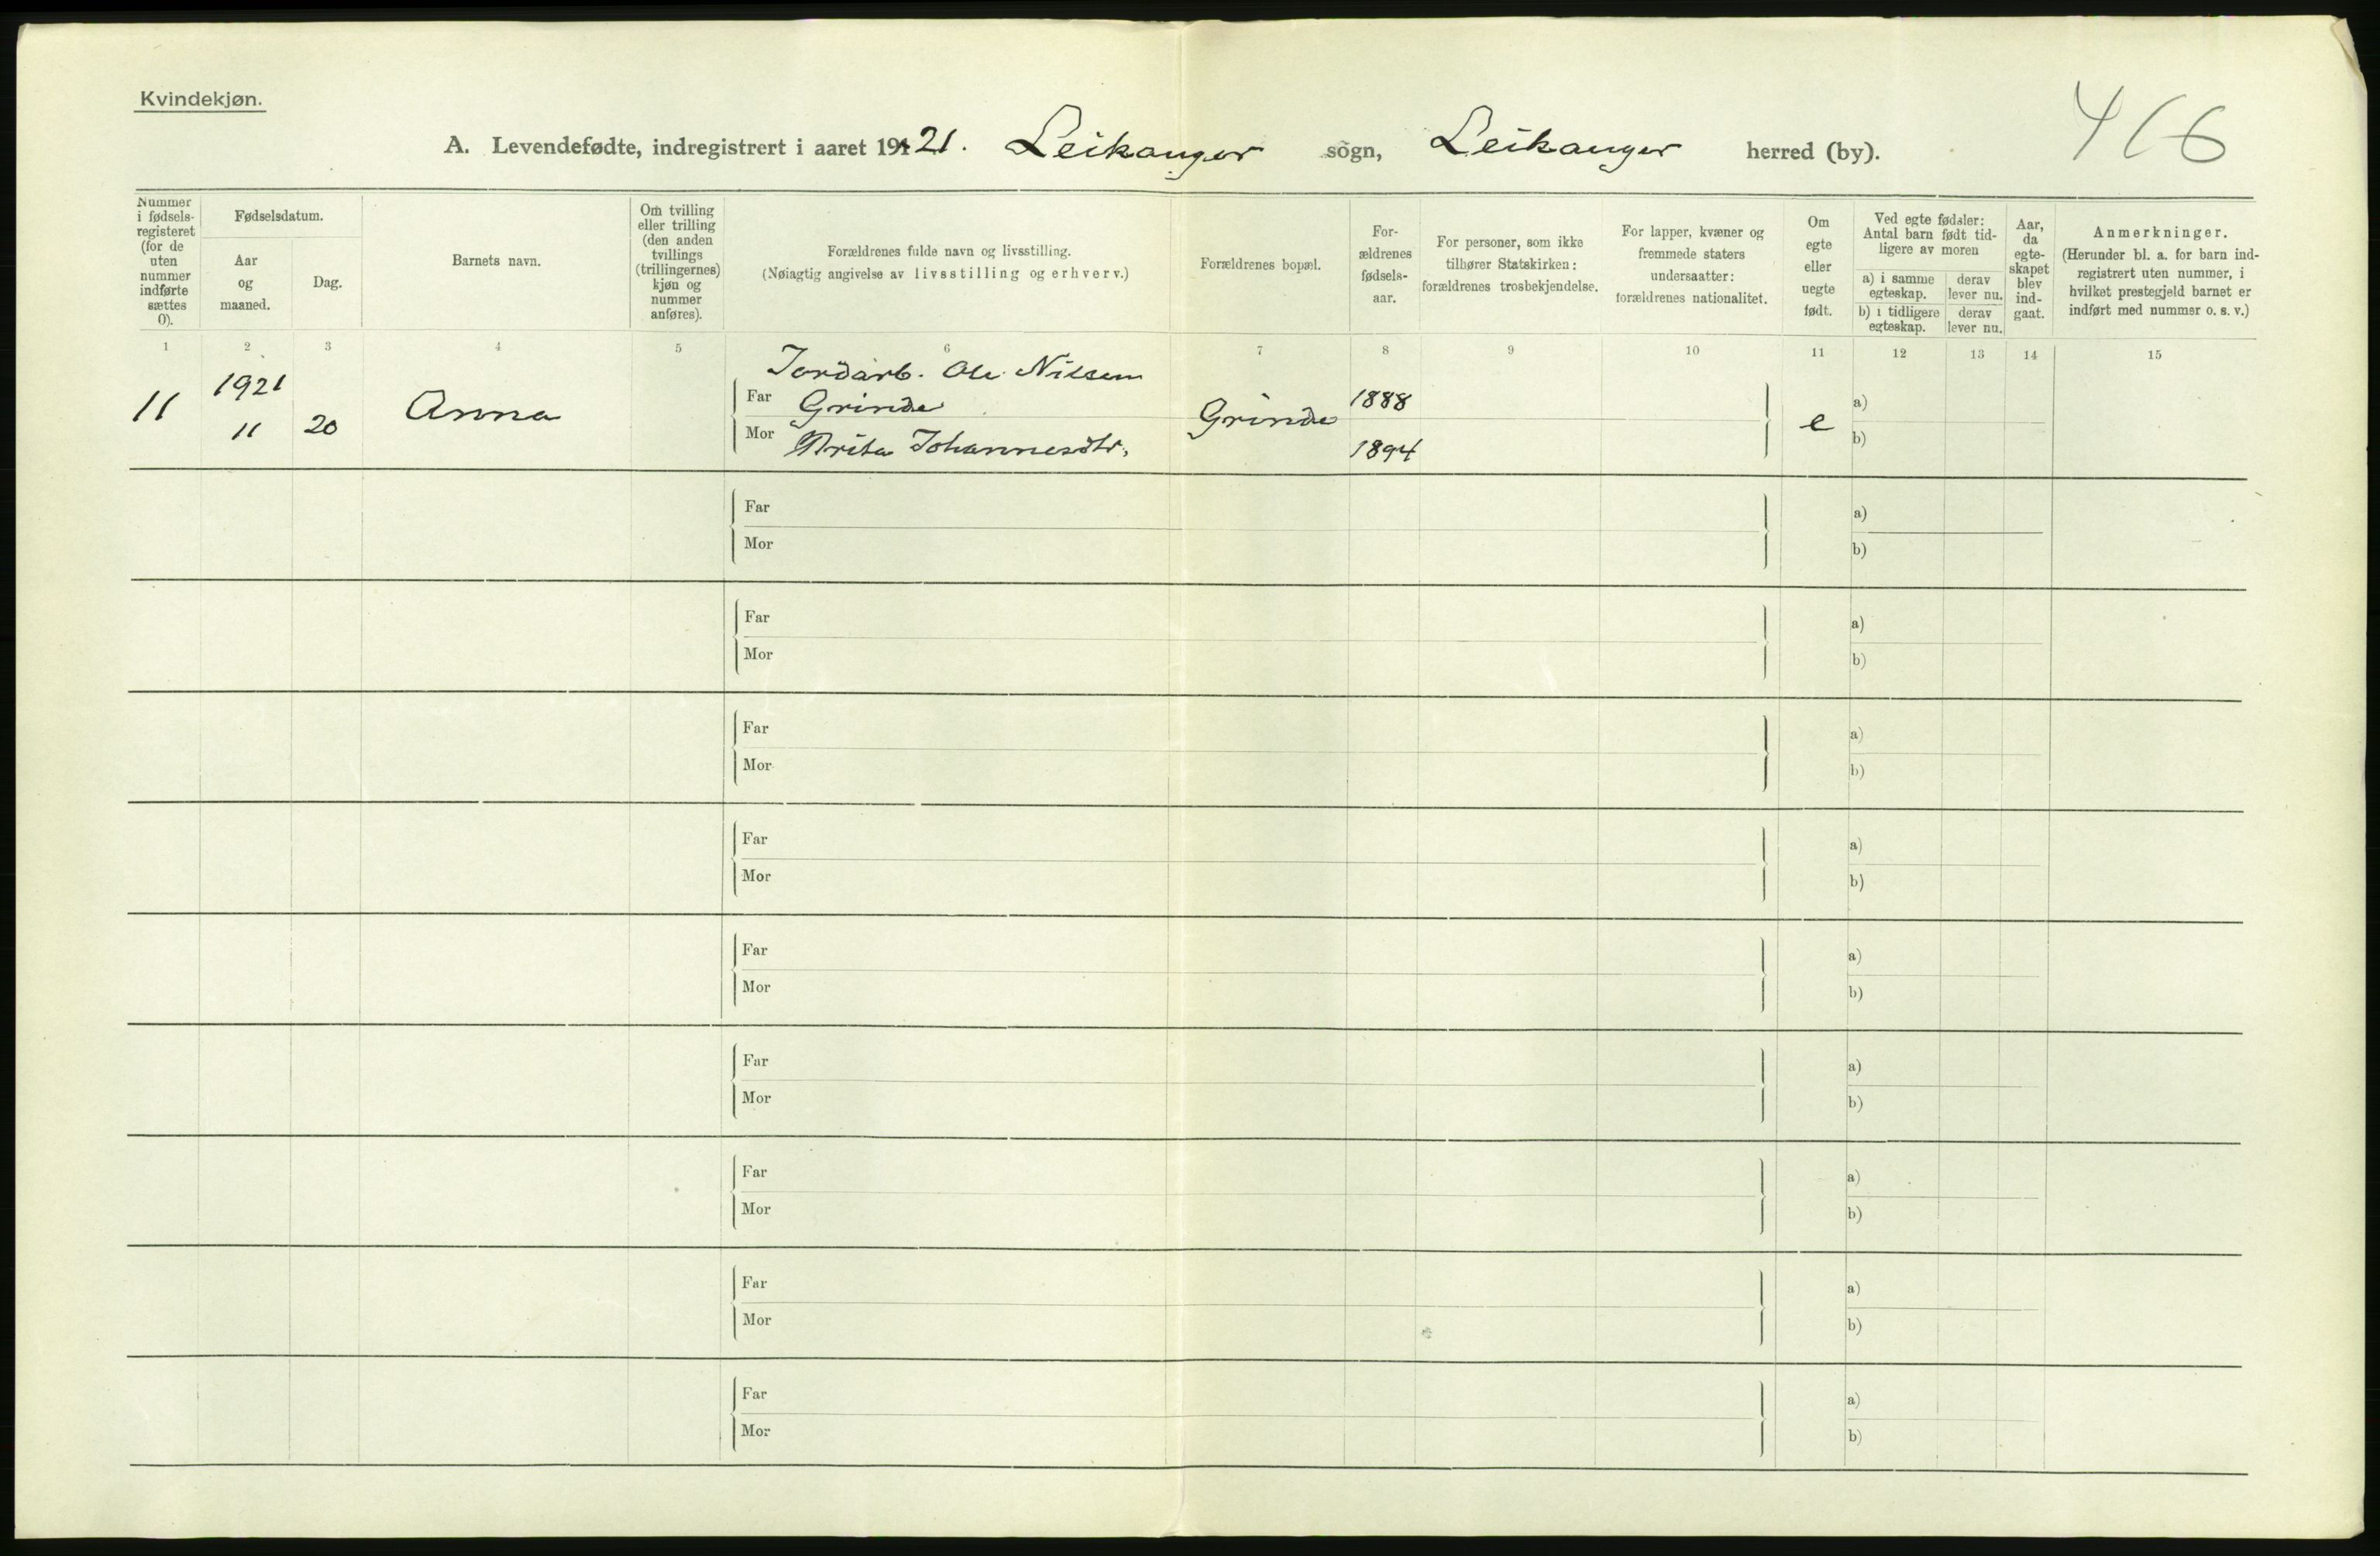 Kvindekjøn.
A. Levendefødte, indregistrert i aaret 1921. Leikanger sogn, Leikanger herred (by).
466
Nummer i fødsels-registeret (for de uten nummer indførte sættes 0).
Fødselsdatum.
Aar og maaned.
Dag.
Barnets navn.
Om tvilling eller trilling (den anden tvillings (trillingernes) kjøn og nummer anføres).
Forældrenes fulde navn og livsstilling.
(Nøiagtig angivelse av livsstilling og erhverv.)
Forældrenes bopæl.
For-ældrenes fødsels-aar.
For personer, som ikke tilhører Statskirken: forældrenes trosbekjendelse.
For lapper, kvæner og fremmede staters undersaatter: forældrenes nationalitet.
Om egte eller uegte født.
Ved egte fødsler: Antal barn født tid-ligere av moren
a) i samme egteskap.
derav lever nu.
b) i tidligere egteskap.
derav lever nu.
Aar, da egte-skapet blev ind-gaat.
Anmerkninger.
(Herunder bl. a. for barn ind-registrert uten nummer, i hvilket prestegjeld barnet er indført med nummer o. s. v.)
1 2 3 4 5 6 7 8 9 10 11 12 13 14 15
Jordarb. Ole Nilsen
11 1921 Anna Far Grinde Grinde 1888 e a)
11 20 Mor Brita Johannesdtr. 1894 b)
Far a)
Mor b)
Far a)
Mor b)
Far a)
Mor b)
Far a)
Mor b)
Far a)
Mor b)
Far a)
Mor b)
Far a)
Mor b)
Far a)
Mor b)
Far a)
Mor b)